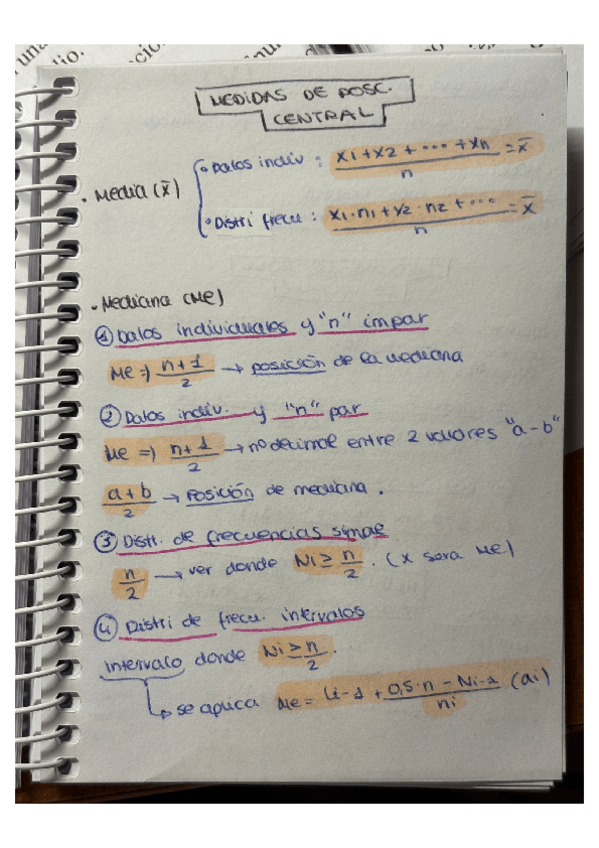 una
dio.
ció
MEDIDAS DE POSC.
CENTRAL
• Media (x̄)
• Datos indiv : x1+x2+ ··· +xn / n = x̄
• Distri frecu : x1·n1+x2·n2+ ··· / n = x̄
• Mediana (Me)
① Datos individuales y "n" impar
Me => n+1 / 2 → posición de la mediana
② Datos indiv. y "n" par
Me => n+1 / 2 → nº decimal entre 2 valores "a-b"
a+b / 2 → posición de mediana.
③ Distr. de frecuencias simple
n / 2 → ver donde Ni ≥ n / 2 . (x sera Me)
④ Distri de frecu. intervalos
intervalo donde Ni ≥ n / 2 .
se aplica Me = Li-1 + 0,5·n - Ni-1 / ni (ai)